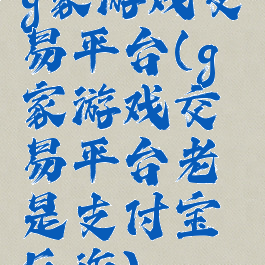 g家游戏交
易平台(g
家游戏交
易平台老
是支付宝